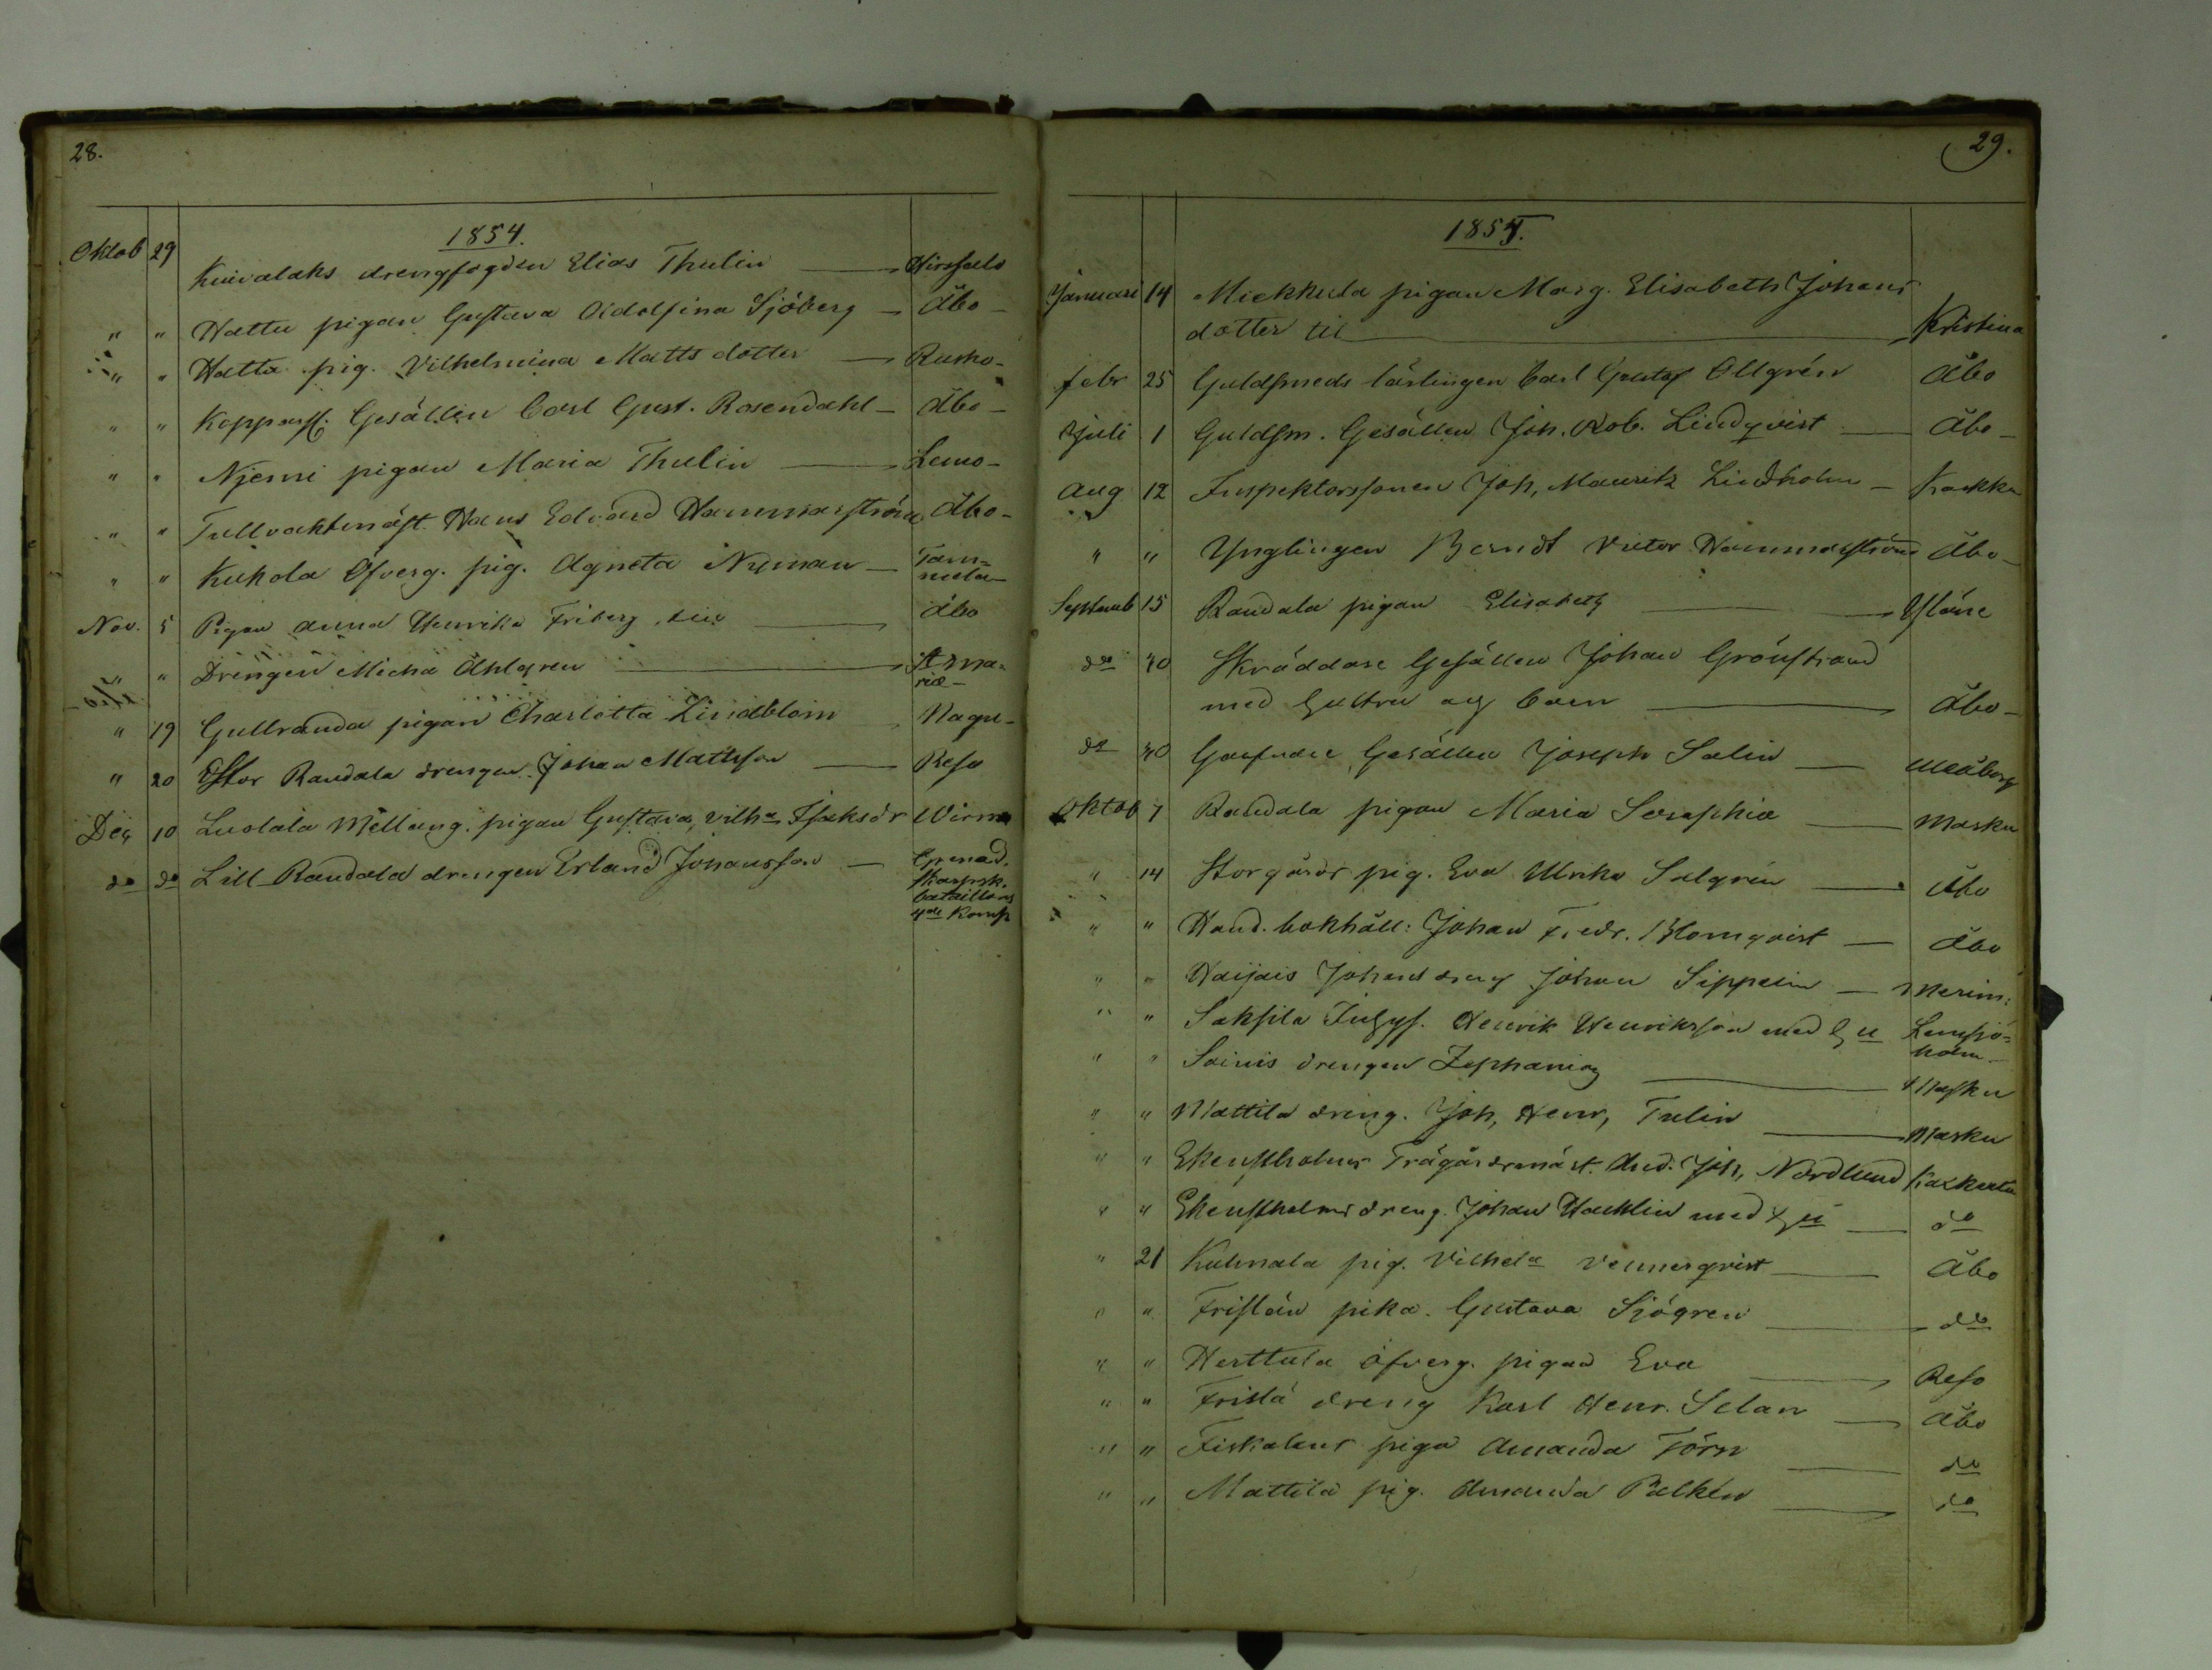 28.
1854.
Oktob 29 Kuivalaks drengfogden Elias Thulin — Hirsfalo
" " Nattu pigan Gustava Adolfina Sjöberg — Åbo –
" " Hatta pig. Vilhelmina Matts dotter — Rusko –
" " Kopparsl. Gesällen Carl Gust. Rosendahl – Åbo –
" " Njemi pigan Maria Thulin — Lemo –
" " Tullvaktmäst. Hans Edvard Hammarström Åbo –
" " Kukola Öfverg. pig. Agneta Nyman — Tam=
mela –
Nov. 5 Pigan Anna Henrika Friberg — Åbo
" " Drengen Micha Åhlgren — St Ma=
riæ –
" 19 Gullranda pigan Charlotta Lindblom Nagu –
" 20 Stor Randala drengen Johan Mattsson — Reso
Dec 10 Luolala Mellang. pigan Gustava Vilh:a Isaksdr Virmo
do do Lill-Randala drengen Erland Johansson — Grenad.
skarpsk.
bataillons
4de Komp
29.
1855.
Januari 14 Miekkula pigan Marg. Elisabeth Johans
dotter til — Kristina
febr 25 Guldsmeds lärlingen Carl Gustaf Ollgrén Åbo
Juli 1 Guldsm. Gesällen Joh. Rob. Lindqvist — Åbo –
Aug 12 Inspektorssonen Joh, Mauritz Lindholm –
" " Ynglingen Berndt Victor Hammarström Åbo –
Septemb 15 Randala pigan Elisabeth — Yläne
do 30 Skräddare Gesällen Johan Grönstrand
med hustru och barn — Åbo –
do 30 Garfvare Gesällen Joseph Salin — Uleåborg
Oktob 7 Randala pigan Maria Seraphia — Masku
" 14 Storgårds pig. Eva Ulrika Salgrén — Åbo
" " Hand. bokhåll: Johan Fredr. Blomqvist — Åbo
" " Haijais Johans dreng Johan Sippelin — Merim:
" " Saksila Inhys. Henrik Henriksson med hu Lemsjö=
holm –
" " Soinis drengen Zephanias — Masku
" " Mattila dreng. Joh, Henr, Tulin — Masku
" " Ekensholms Trägårdsmäst. And. Joh, Nordlund Kakskerta
" " Ekensholms dreng. Johan Hacklin med hu — do
" 21 Kulmala pig. Vilhela Vennerqvist — Åbo
" " Fristän pika. Gustava Sjögren — do
" " Herttula öfverg. pigan Eva — Reso
" " Fristä dreng Karl Henr. Selan — Åbo
" " Fiskalens piga Amanda Törn — do
" " Mattila pig. Amanda Palkén — do